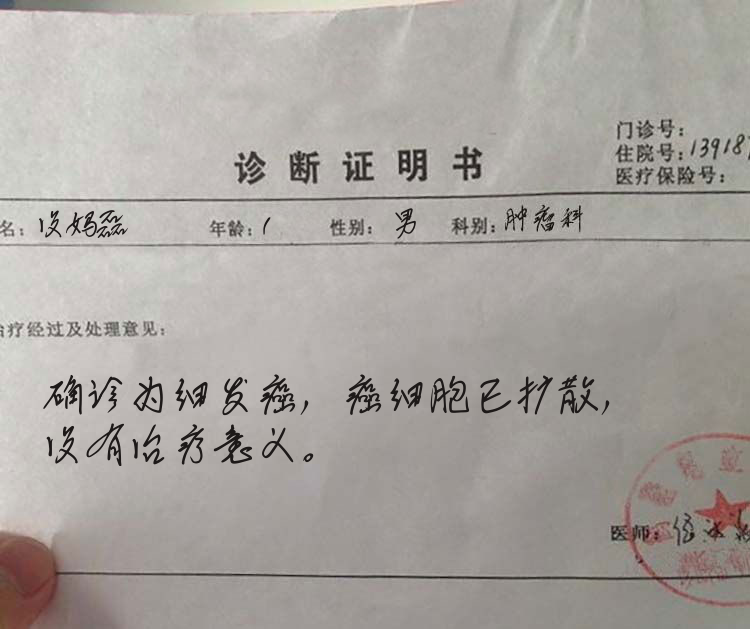 门诊号:
诊断证明书
住院号:139187
医疗保险号:
名: 没妈磊 年龄: 1 性别: 男 科别: 肿瘤科
治疗经过及处理意见:
确诊为细发癌，癌细胞已扩散，
没有治疗意义。
医师: